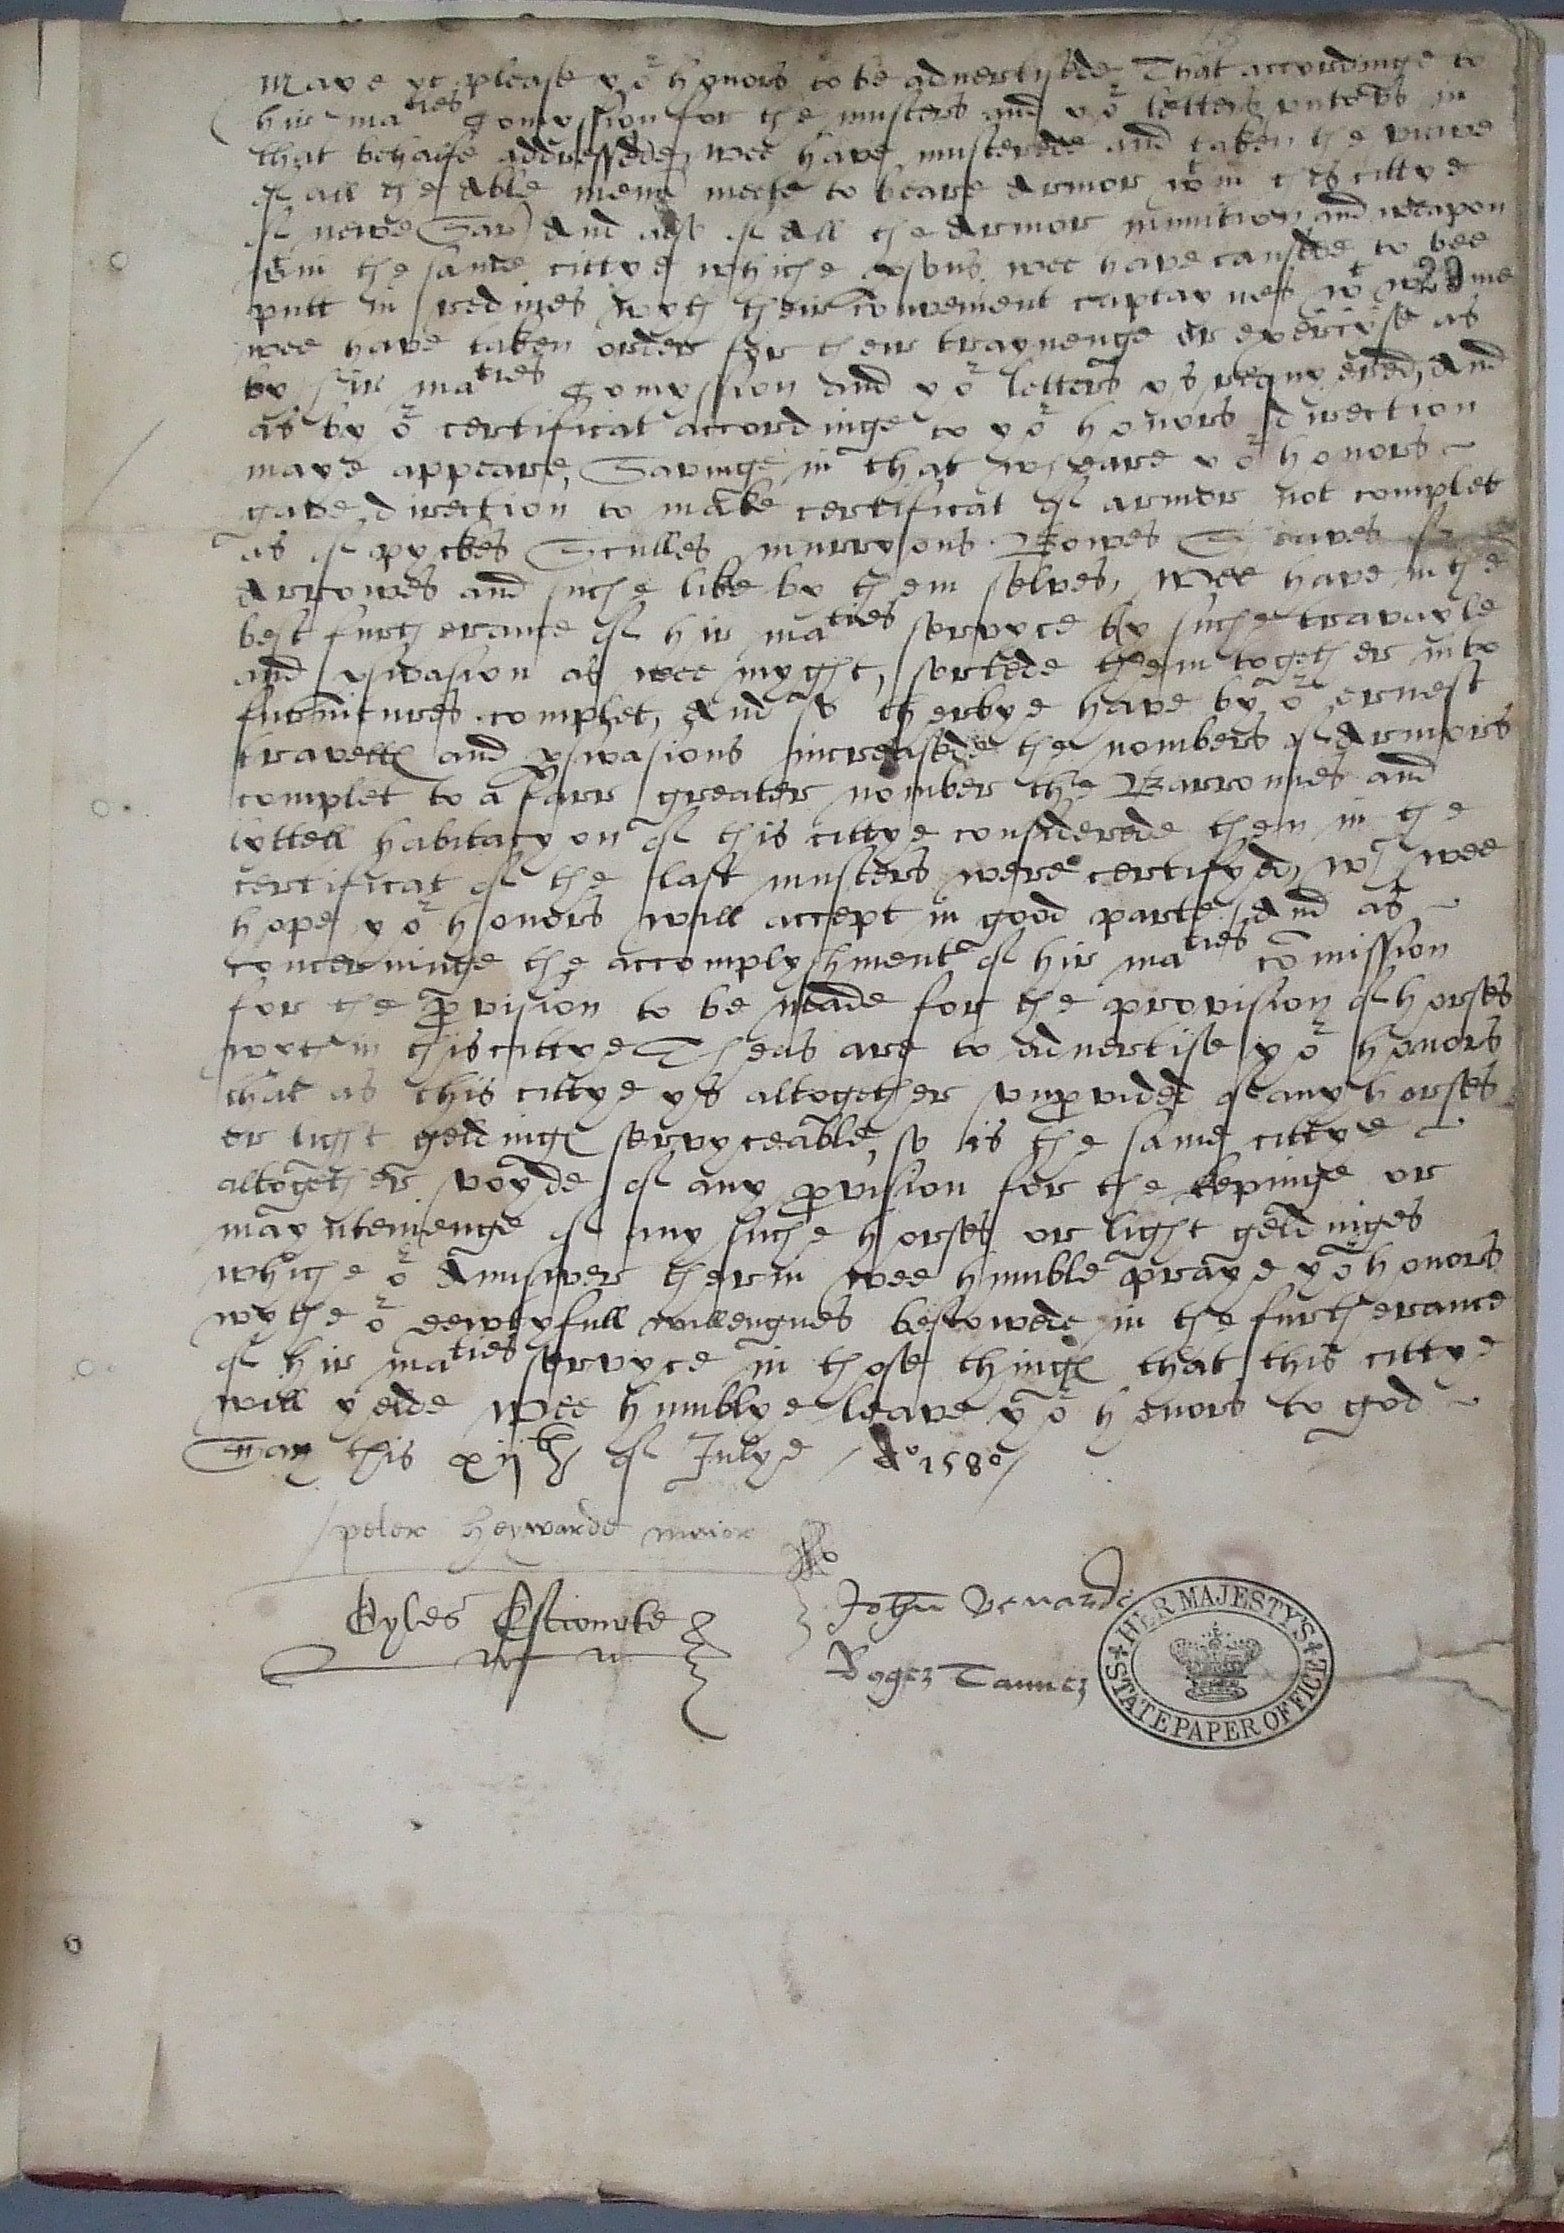 Maye yt please yor honors to be advertysede That accordinge to
hir maties Comyssion for the musters and yor letters unto us in
that behalfe addressede, wee have musterede and taken the viewe
of all the able mene meete to beare Armor wtin this cittye
of newe Sar) And also of all the Armor munition and weapon
in the same cittye whiche psons wee have causede to bee
putt in redines wyth their convenient captaynes wt
wee have taken order for their traynenge or exercyse as
by hir maties Comyssion and yor letters ys requyered, And
as by or certificat accordinge to yor honors direction
maye appeare, Savinge in that wheare yor honors
gave direction to make certificat of armor not complet
as of pyckes Sculles murryons Bowes Sheaves of
Arrowes and suche like by them selves, Wee have in the
best furtherance of hir maties servyce by suche travayle
and pswasion as wee myght, sortede them together into
furnitures complet, And so therbye have by or ernest
travells and pswasions increasede the nombers of Armors
complet to a farr greater nomber the Barronnes and
lyttell habitacyon of this cittye considerede then in the
certificat of the last musters were certifyed, wch wee
hope yor honors will accept in good parte, And as
concerninge the accomplyshment of hir maties comission
for the pvision to be made for the provision of horses
wythin this cittye Theas are to advertise yor honors
that as this cittye ys altogether unpvided of any horses
or light geldings servyceable, so is the same cittye
altogether voyde of any pvision for the kepinge or
mayntenienge of any suche horses or light geldinges
whiche or Annswer therin wee humble praye yor honors
wythe or dewtyfull willengnes bestowede in the furtherance
of hir maties servyce in those things that this cittye
will yelde Wee humblye leave yor honors to god
Sar this xijth of Julye Ao 1580
peter heywarde maior
Gyles Estcourte
John
Roger Tanner
HER MAJESTY'S
STATE PAPER OFFICE